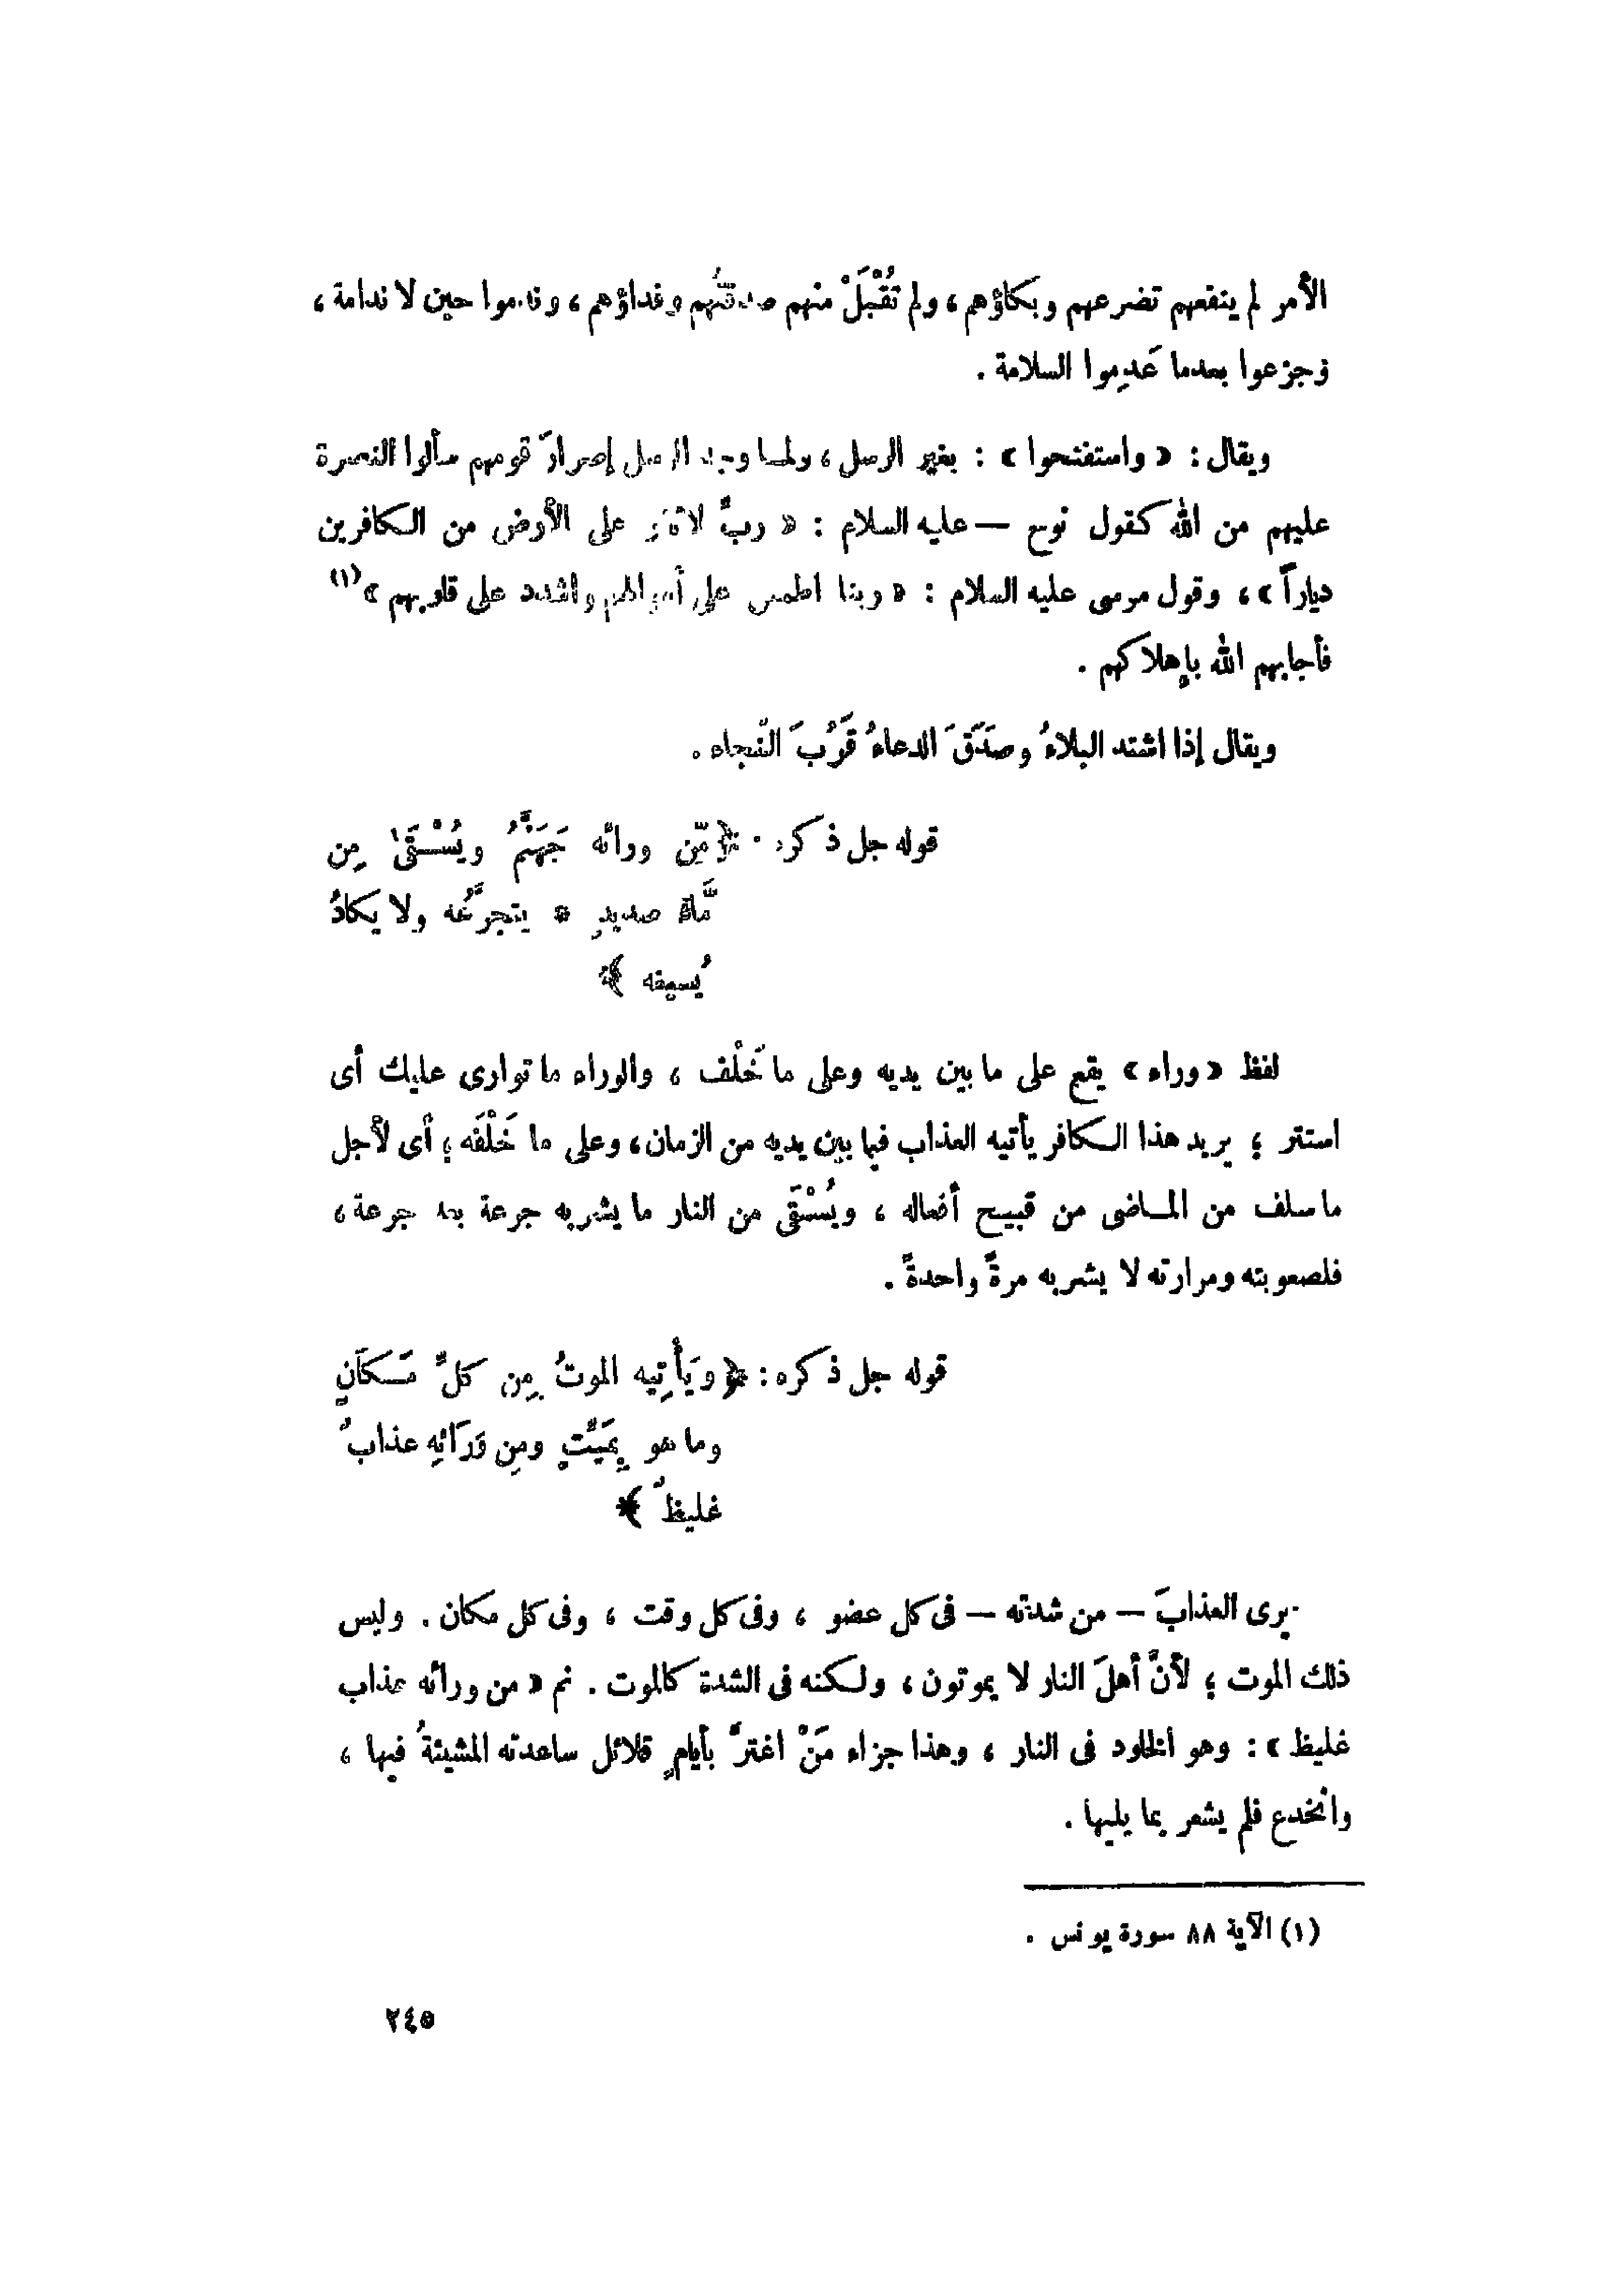 الأمر لم ينفعهم تضرعهم وبكاؤهم ، ولم تُقْبَلْ منهم صدقتُهم وفداؤهم ، وندموا حين لا ندامة ،
وجزعوا بعدما عَدِموا السلامة .
ويقال : « واستفتحوا » : بغير الرسل ، ولما وجد الرسل إصرارَ قومهم سألوا النصرة
عليهم من الله كقول نوح — عليه السلام : « ربِّ لا تذر على الأرض من الكافرين
دياراً » ، وقول موسى عليه السلام : « ربنا اطمس على أموالهم واشدد على قلوبهم »(١)
فأجابهم الله بإهلاكهم .
ويقال إذا اشتد البلاءُ وصَدَقَ الدعاءُ قَرُبَ النَّجاء .
قوله جل ذكره : ﴿ مِّن ورائه جَهَنَّمُ ويُسْقَىٰ مِن
مَّاءٍ صديدٍ * يتجرَّعُه ولا يكادُ
يُسيغه ﴾
لفظ « وراء » يقع على ما بين يديه وعلى ما خَلْف ، والوراء ما توارى عليك أى
استتر ؛ يريد هذا الكافر يأتيه العذاب فيما بين يديه من الزمان ، وعلى ما خَلْفَه ؛ أى لأجل
ما سلف من الماضى من قبيح أفعاله ، ويُسْقَى من النار ما يشربه جرعة بعد جرعة ،
فلصعوبته ومرارته لا يشربه مرةً واحدةً .
قوله جل ذكره : ﴿ ويَأْتِيه الموتُ مِن كلِّ مَكَانٍ
وما هو بِمَيِّتٍ ومِن وَرَائِهِ عذابٌ
غليظٌ ﴾
يرى العذابَ — من شدته — فى كل عضو ، وفى كل وقت ، وفى كل مكان . وليس
ذلك الموت ؛ لأنَّ أهلَ النار لا يموتون ، ولكنه فى الشدة كالموت . ثم « من ورائه عذاب
غليظ » : وهو الخلود فى النار ، وهذا جزاء مَنْ اغترَّ بأيامٍ قلائل ساعدته المشيئةُ فيها ،
وانخدع فلم يشعر بما يليها .
(١) الآية ٨٨ سورة يونس .
٢٤٥